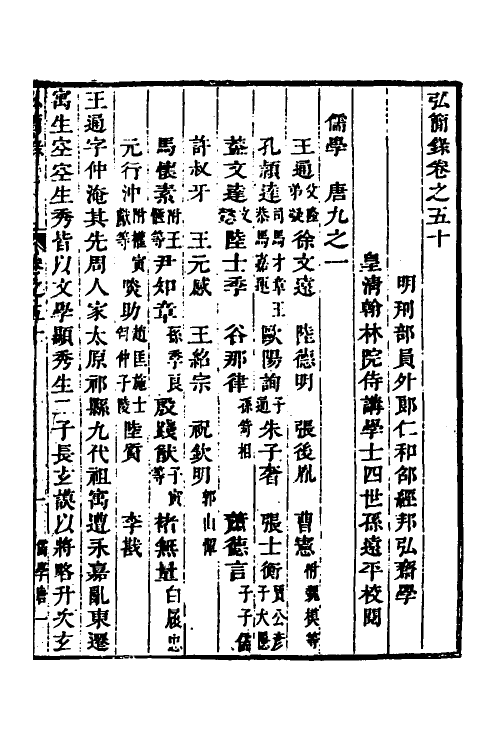 弘簡錄卷之五十
明刑部員外郎仁和邵經邦弘齋學
皇清翰林院侍講學士四世孫遠平校閱
儒學 唐九之一
王通父隆弟凝 徐文遠 陸德明 張後胤 曹憲附魏模等
孔穎達司馬才章王恭馬嘉運 歐陽詢子通 朱子奢 張士衡賈公彥子大隱
蓋文達文懿 陸士季 谷那律孫倚相 蕭德言子子儒
許叔牙 王元感 王紹宗 祝欽明郭山惲
馬懷素附王愜等 尹知章孫季良 殷踐猷子寅等 褚無量白履忠
元行沖附權寅獻等 啖助趙匡施士匄仲子陵 陸質 李戡
王通字仲淹其先周人家太原祁縣九代祖寓遭永嘉亂東遷
寓生空空生秀皆以文學顯秀生二子長玄謨以將略升次玄
弘簡錄 卷之五十 一 儒學唐一